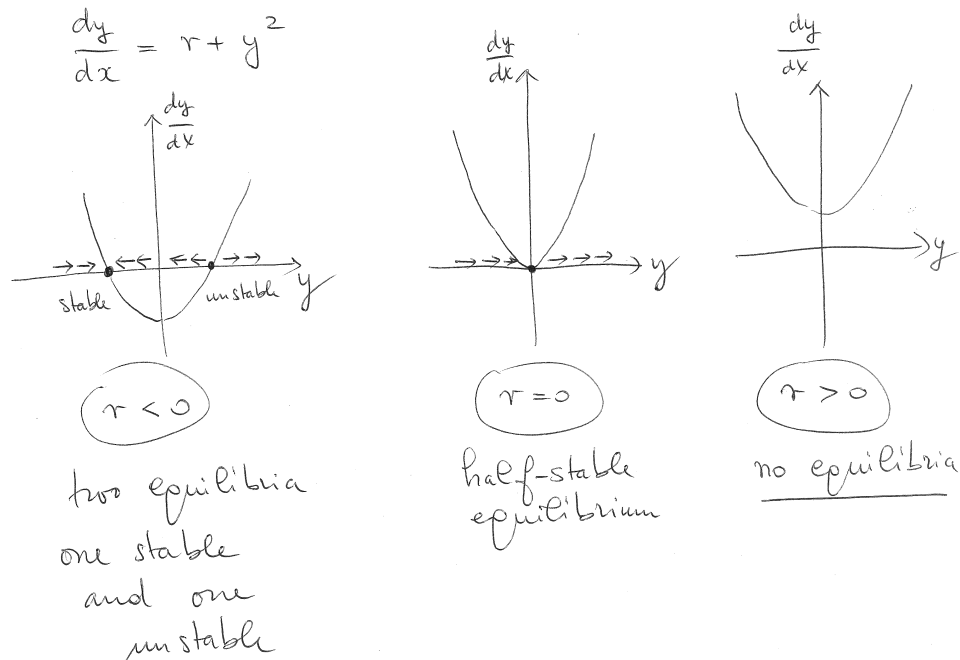 dy/dx = r + y²
dy/dx
y
stable
unstable
r < 0
two equilibria
one stable
and one
unstable
dy/dx
y
r = 0
half-stable
equilibrium
dy/dx
y
r > 0
no equilibria